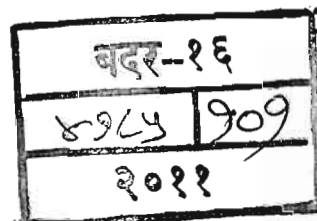 वदर--१६
४१८५ १०१
२०११